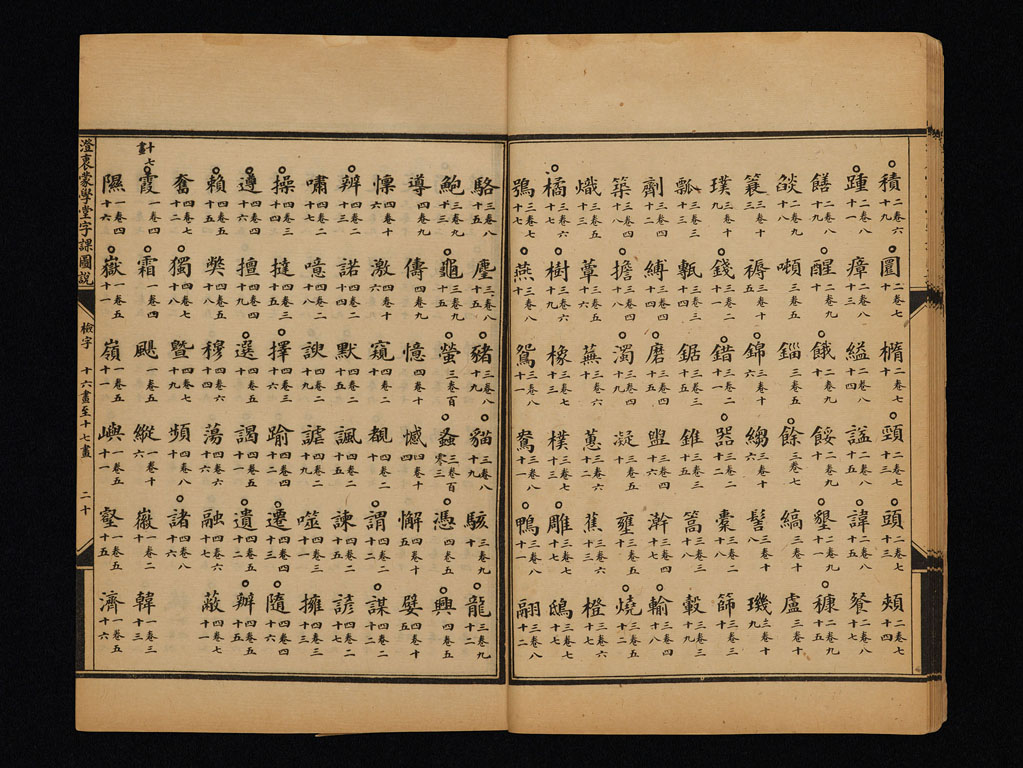 積 二卷六十九 圜 二卷七十 橢 二卷七十 頸 二卷七十三 頭 二卷七十三 頰 二卷七十四
踵 二卷七十一 瘴 二卷七十三 縊 二卷七十四 諡 二卷七十五 諱 二卷七十五 餐 二卷七十七
饍 二卷七十九 醒 二卷七十九 餓 二卷七十九 餒 二卷七十九 墾 糠
燄 三卷五 噸 三卷五 錙 三卷五 餘 三卷七 縞 三卷十八 盧 三卷十
簑 褥 錦 三卷十六 縐 三卷十六 髻 三卷十八 璣 三卷十九
璞 三卷二十 錢 三卷二十 錯 三卷二十 器 三卷二十 橐 三卷二十八 篩 三卷三十
瓢 三卷三十三 甎 三卷三十四 鋸 三卷三十五 錐 三卷三十五 篙 三卷三十八 轂 三卷三十八
劑 三卷四十二 縛 三卷四十四 磨 三卷四十五 盥 三卷四十六 澣 三卷四十七 輸 三卷四十八
築 三卷四十八 擔 三卷五十 濁 三卷五十 凝 三卷五十 壅 三卷五十 燒 三卷五十二
熾 三卷五十三 蕈 三卷六十六 蕪 三卷六十 蕙 三卷六十二 蕉 三卷六十三 橙 三卷六十五
橘 三卷六十七 樹 三卷六十九 橡 三卷七十 樸 三卷七十三 雕 三卷七十七 鴟 三卷七十七
鴞 三卷七十七 燕 三卷八十 鴛 三卷八十一 鴦 三卷八十一 鴨 三卷八十一 翮 三卷八十二
駱 三卷八十五 麈 三卷八十五 豬 三卷八十九 貓 三卷八十九 駭 三卷九十 龍 三卷九十二
鮑 三卷九十三 龜 三卷九十五 螢 三卷百 蟊 三卷百零三 憑 四卷五 興 四卷五
導 四卷九 儔 四卷九 憶 四卷十 憾 四卷十四 懈 四卷十五 嬖 四卷十
懍 四卷十六 激 四卷十六 窺 四卷二十 覩 四卷二十 謂 四卷二十二 謀 四卷二十二
辨 四卷二十三 諾 四卷二十四 默 四卷二十五 諷 四卷二十五 諫 四卷二十五 諺 四卷二十七
嘯 四卷二十七 噫 四卷二十八 諛 四卷二十 謔 四卷二十九 噬 四卷三十一 擁 四卷三十三
操 四卷三十四 撻 四卷三十五 擇 四卷三十六 踰 四卷四十二 遷 四卷四十三 隨 四卷四十六
遵 四卷四十五 擅 四卷四十九 選 四卷五十 謁 四卷五十一 遺 四卷五十二 辦 四卷五十五
賴 四卷五十五 獘 四卷五十八 穆 四卷六十四 蕩 四卷六十六 融 四卷六十七 蔽 四卷七十一
奮 四卷七十二 獨 四卷七十八 曁 四卷七十九 頻 四卷八十 諸 四卷八十六
十七畫
霞 一卷四 霜 一卷四 颶 一卷五 縱 一卷十六 徽 一卷二十 韓 一卷三十三
隰 一卷四十六 嶽 一卷五十一 嶺 一卷五十一 嶼 一卷五十一 壑 一卷五十五 濟 一卷五十六
澄衷蒙學堂字課圖說 檢字 十六畫至十七畫 二十